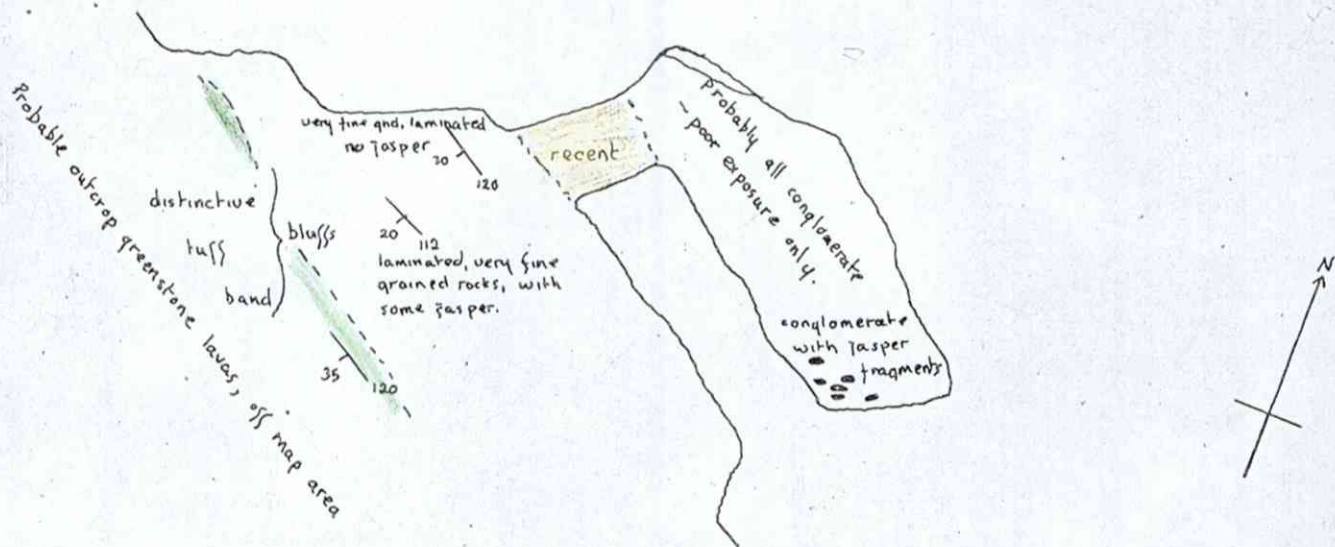 Probable outcrop greenstone lavas, off map area
distinctive
tuff
band
bluffs
35
120
very fine gnd, laminated
no jasper
30
120
20
112
laminated, very fine
grained rocks, with
some jasper.
recent
Probably all conglomerate
- poor exposure only.
conglomerate
with jasper
fragments
N